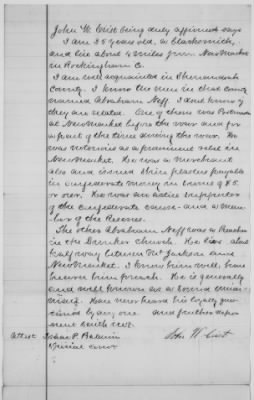 John W. Crist being duly affirmed says
I am 35 years old, a blacksmith,
and live about 2 miles from New Market
in Rockingham Co.
I am well acquainted in Shenandoah
County. I know two men in that county
named Abraham Neff. I dont know if
they are related. One of them was Postmaster
at New Market before the war and for
a part of the time during the war. He
was notorious as a prominent rebel in
New Market. He was a merchant
also and issued shin plasters payable
in confederate money in sums of $5
or over. He was an active supporter
of the confederate cause and a mem-
ber of the Reserves.
The other Abraham Neff was a Preacher
in the Dunker church. He lives about
half way between Mt Jackson and
New Market. I know him well, have
heard him preach. He is generally
and well known as a Union man
himself. Have never heard his loyalty ques-
tioned by any one and further depo-
nent saith not.
John W. Crist
Attest Isaac P. Baldwin
Special Comr